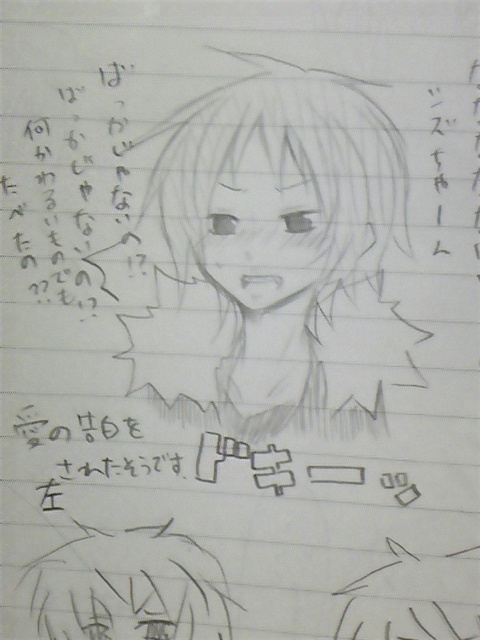 シズちゃーん
ばっかじゃないの!?
ばっかじゃないの!?
何かわるいものでも
たべたの??
愛の告白を
されたそうです
左
ドキーン